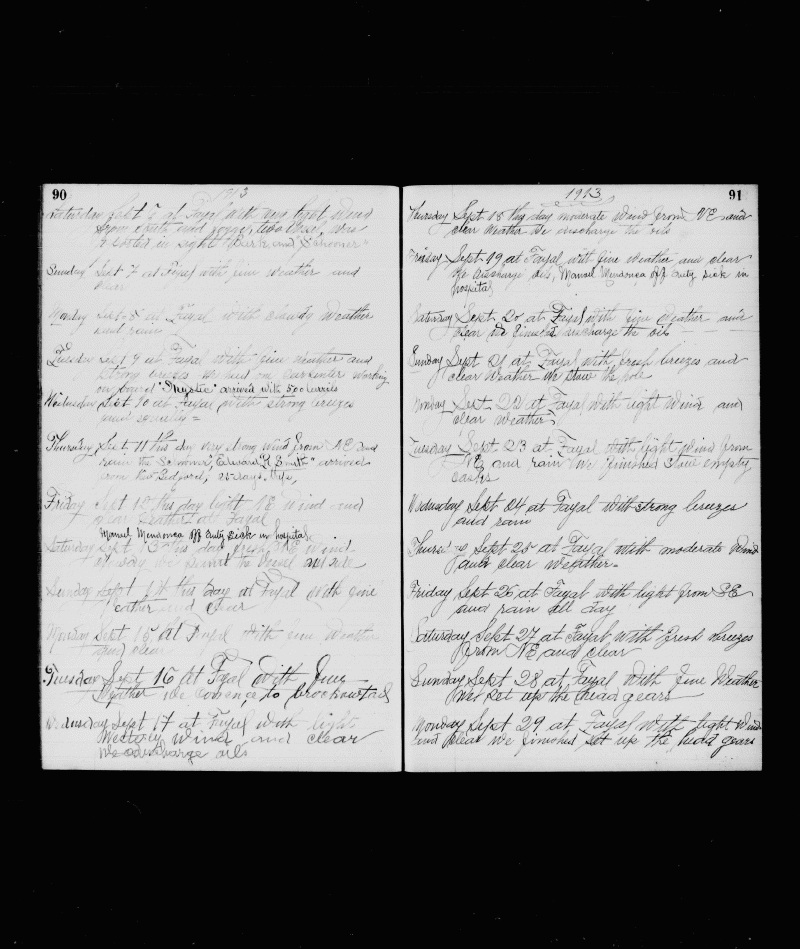 90
1913
Saturday Sept 6 at Fayal with very light wind
from South and foggy, two
in sight Bark and Schooner
Sunday Sept 7 at Fayal with fine weather and
clear
Monday Sept 8 at Fayal with cloudy weather
and rain
Tuesday Sept 9 at Fayal with fine weather and
strong breezes we had on carpenter working
on board "Mystic" arrived with 500 barrels
Wednesday Sept 10 at Fayal with strong breezes
and squally =
Thursday Sept 11 this day very strong wind from NE and
rain the Schooner "Edward R Smith" arrived
from New Bedford, 25 days,
Friday Sept 12 this day light NE wind and
clear weather at Fayal
Manuel Mendonca off duty sick in hospital
Saturday Sept 13 this day fresh NE wind
we the vessel outside
Sunday Sept 14 this day at Fayal with fine
eather and clear
Monday Sept 15 at Fayal with fine weather
and clear
Tuesday Sept 16 at Fyal with fine
Weather we
Wednesday Sept 17 at Fayal with light
Westerly wind and clear
We discharge oils
1913
91
Thursday Sept 18 this day moderate wind from NE and
clear weather we discharge the oils
Friday Sept 19 at Fayal with fine weather and clear
We discharge oils, Manuel Mendonca off duty sick in
hospital
Saturday Sept 20 at Fayal with fine weather and
clear we finished discharge the oils
Sunday Sept 21 at Fayal with fresh breezes and
clear weather we stow the hole
Monday Sept 22 at Fayal with light wind and
clear weather
Tuesday Sept 23 at Fayal with light wind from
NE and rain we finished stow empty
casks
Wednesday Sept 24 at Fayal with strong breezes
and rain
Thurs Sept 25 at Fayal with moderate wind
and clear weather
Friday Sept 26 at Fayal with light from SE
and rain all day
Saturday Sept 27 at Fayal with fresh breezes
from NE and clear
Sunday Sept 28 at Fayal with fine Weather
we set up the head gears
Monday Sept 29 at Fayal with light wind
and clear we finished set up the head gears